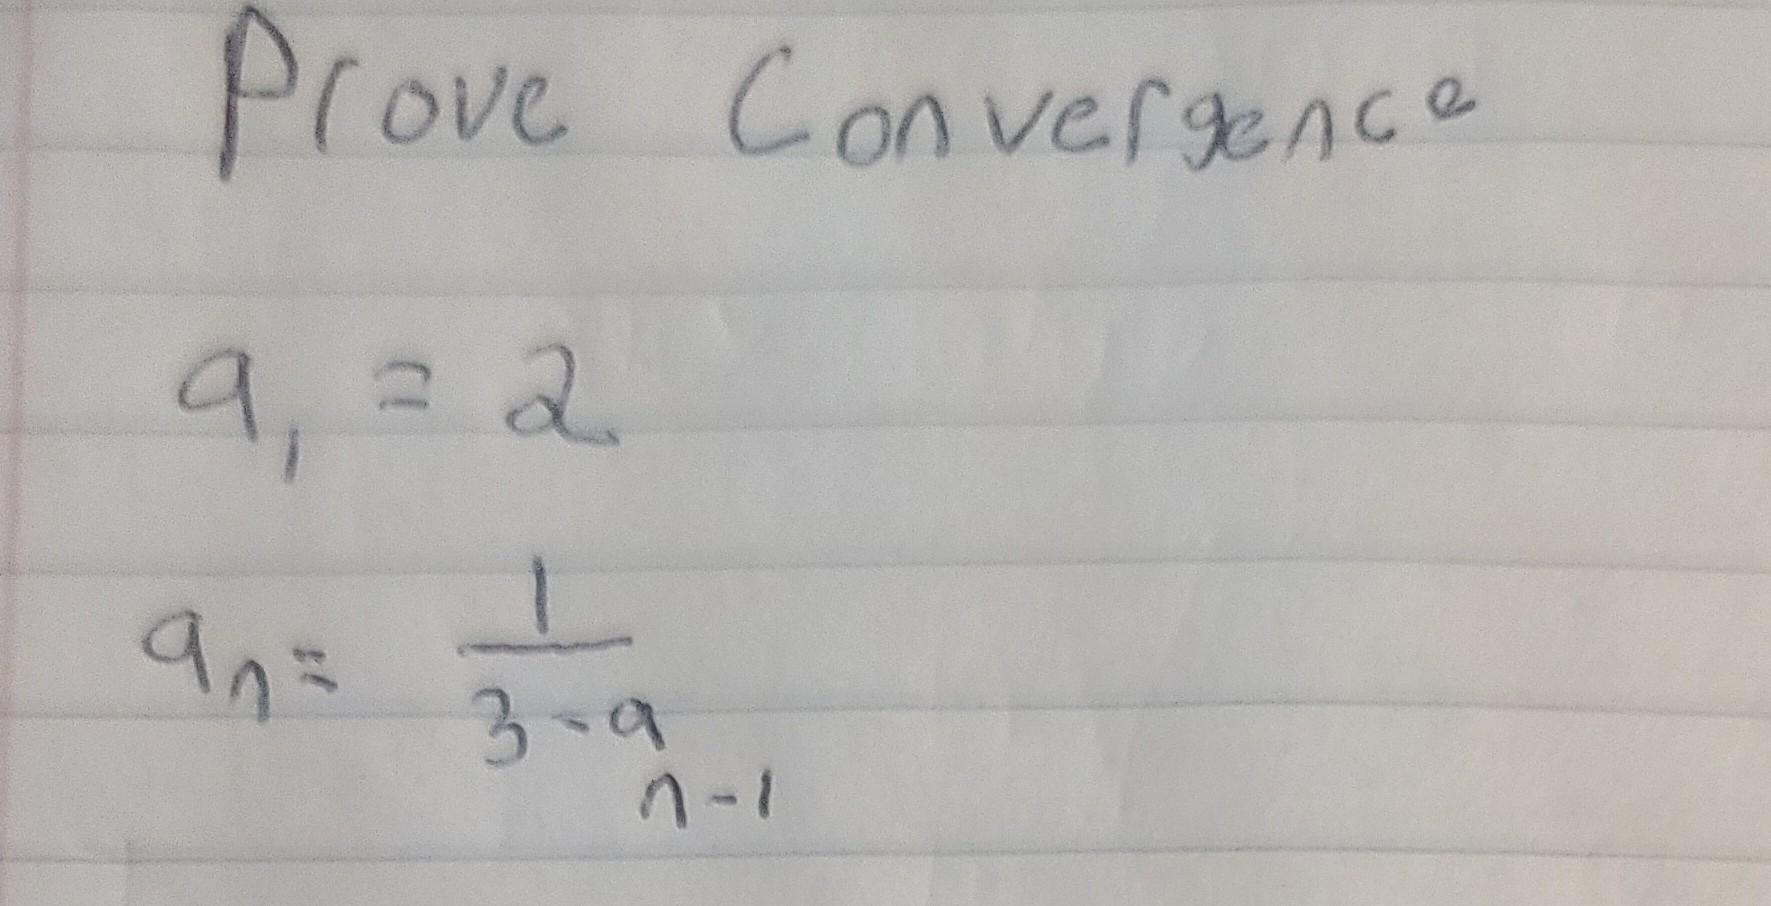 Prove Convergence
a₁ = 2
aₙ = 1/(3-aₙ₋₁)